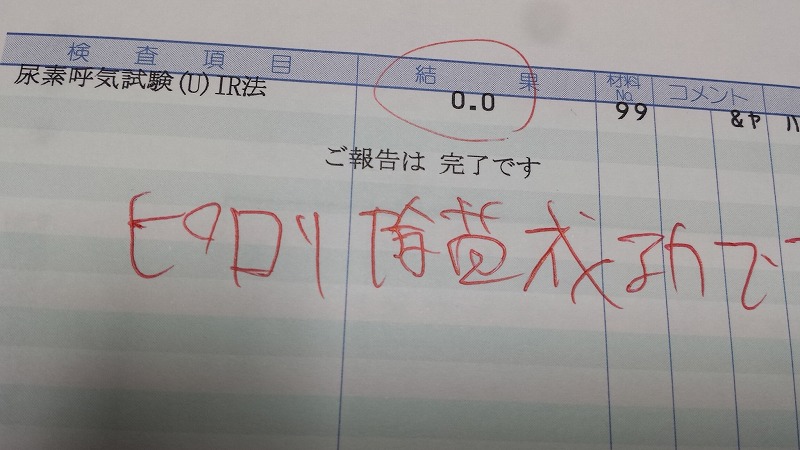 検査項目 結果 材料No. コメント
尿素呼気試験(U)IR法 0.0 99 &ヤ
ご報告は 完了です
ピロリ 除菌成功で